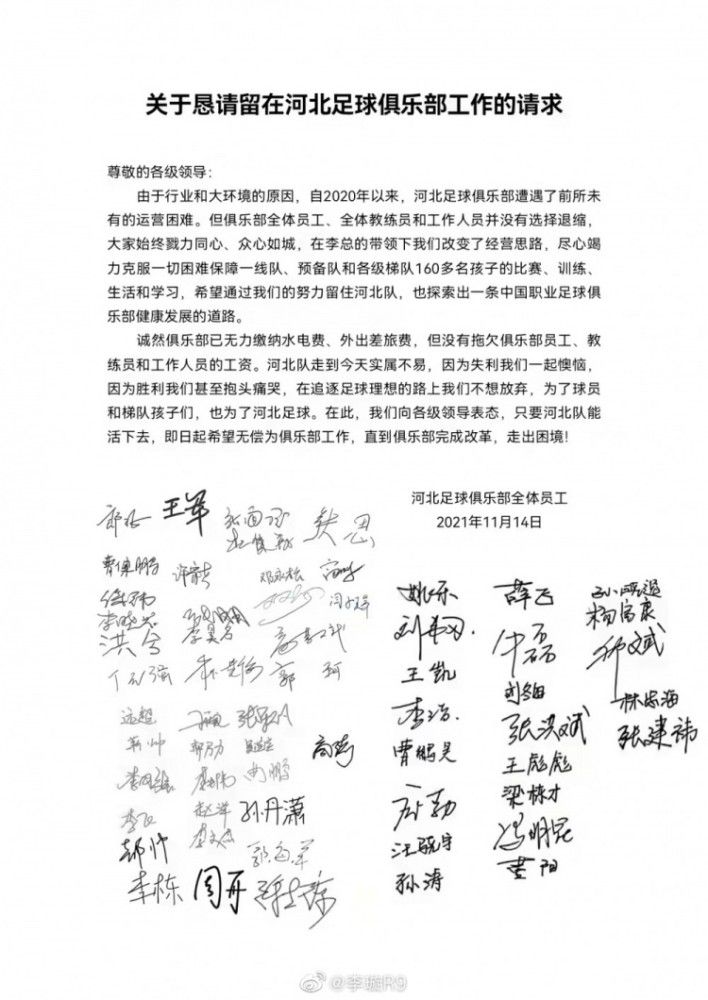 关于恳请留在河北足球俱乐部工作的请求
尊敬的各级领导：
由于行业和大环境的原因，自2020年以来，河北足球俱乐部遭遇了前所未
有的运营困难。但俱乐部全体员工、全体教练员和工作人员并没有选择退缩，
大家始终戮力同心、众心如城，在李总的带领下我们改变了经营思路，尽心竭
力克服一切困难保障一线队、预备队和各级梯队160多名孩子的比赛、训练、
生活和学习，希望通过我们的努力留住河北队，也探索出一条中国职业足球俱
乐部健康发展的道路。
诚然俱乐部已无力缴纳水电费、外出差旅费，但没有拖欠俱乐部员工、教
练员和工作人员的工资。河北队走到今天实属不易，因为失利我们一起懊恼，
因为胜利我们甚至抱头痛哭，在追逐足球理想的路上我们不想放弃，为了球员
和梯队孩子们，也为了河北足球。在此，我们向各级领导表态，只要河北队能
活下去，即日起希望无偿为俱乐部工作，直到俱乐部完成改革，走出困境！
河北足球俱乐部全体员工
2021年11月14日
王军
姚乐
薛飞
王凯
李浩
张洪斌
林忠海
张建祎
曹鹏昊
王彪彪
梁栋才
冯明昆
孙涛
黄阳
远超
高莹
孙丹潇
郝帅
李栋
周开
@李璇R9